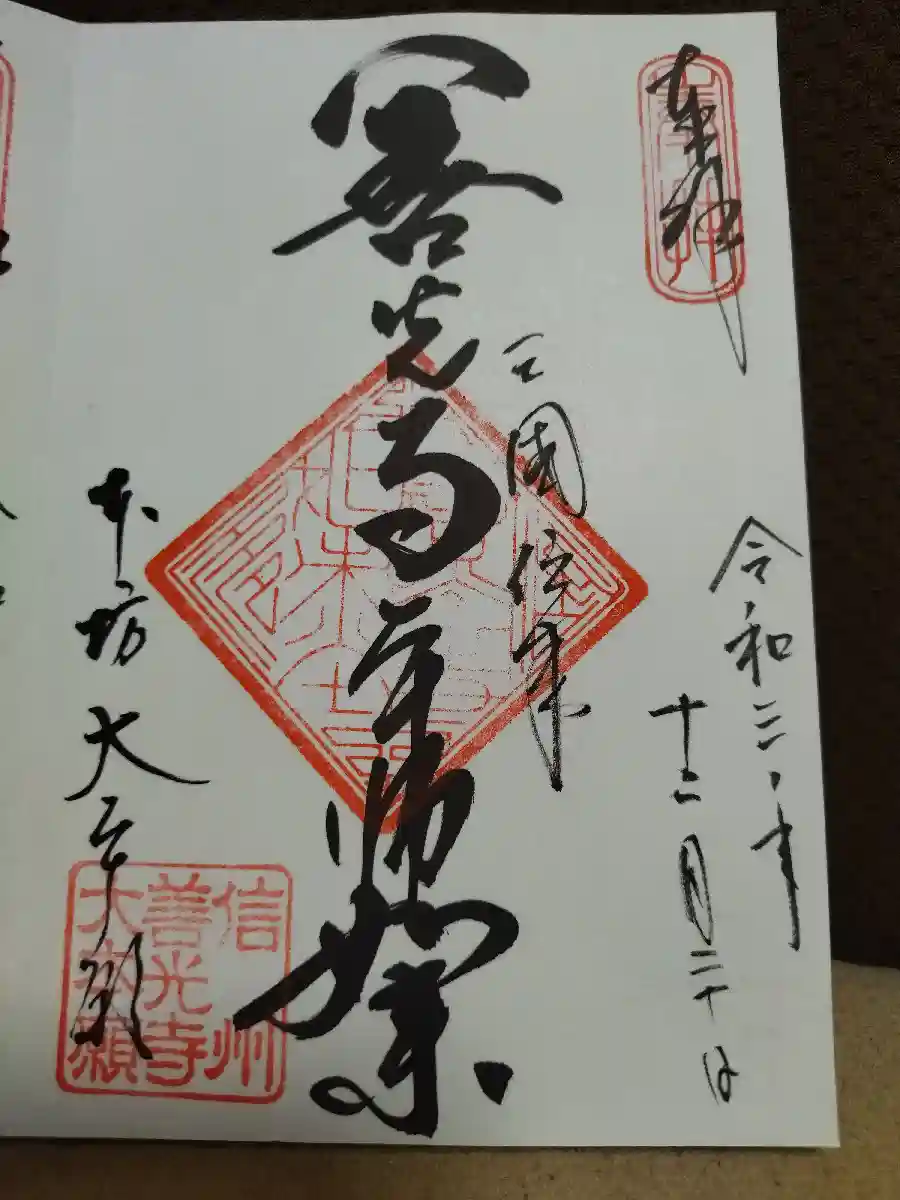 奉拝
令和二年
十二月二十日
三國傳来
善光寺本師如来
本坊 大本願
信州
善光寺
大本願